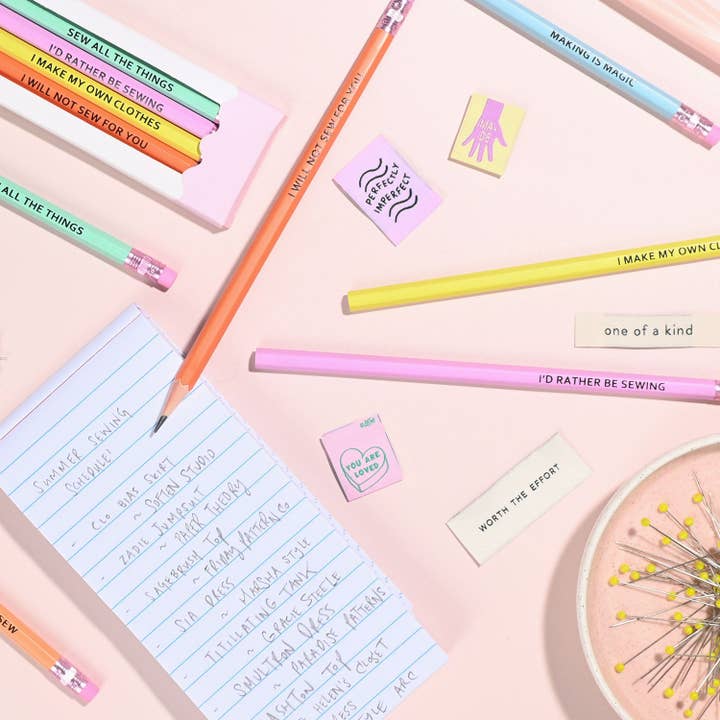 SEW ALL THE THINGS
I'D RATHER BE SEWING
I MAKE MY OWN CLOTHES
I WILL NOT SEW FOR YOU
I WILL NOT SEW FOR YOU
MAKING IS MAGIC
PERFECTLY
IMPERFECT
ALL THE THINGS
I MAKE MY OWN CL
one of a kind
I'D RATHER BE SEWING
YOU ARE
LOVED
WORTH THE EFFORT
SUMMER SEWING
SCHEDULE!
- CLO BIAS SKIRT
~ SOFTEN STUDIO
- ZADIE JUMPSUIT
~ PAPER THEORY
- SAGEBRUSH TOP
~ FRIDAY PATTERN CO
- SIA DRESS
~ MARSHA STYLE
- TITILLATING TANK
~ GRACIE STEELE
SMULTRON DRESS
~ PARADISE PATTERNS
ASHTON TOP
HELEN'S CLOSET
ESS
TYLE ARC
SEW